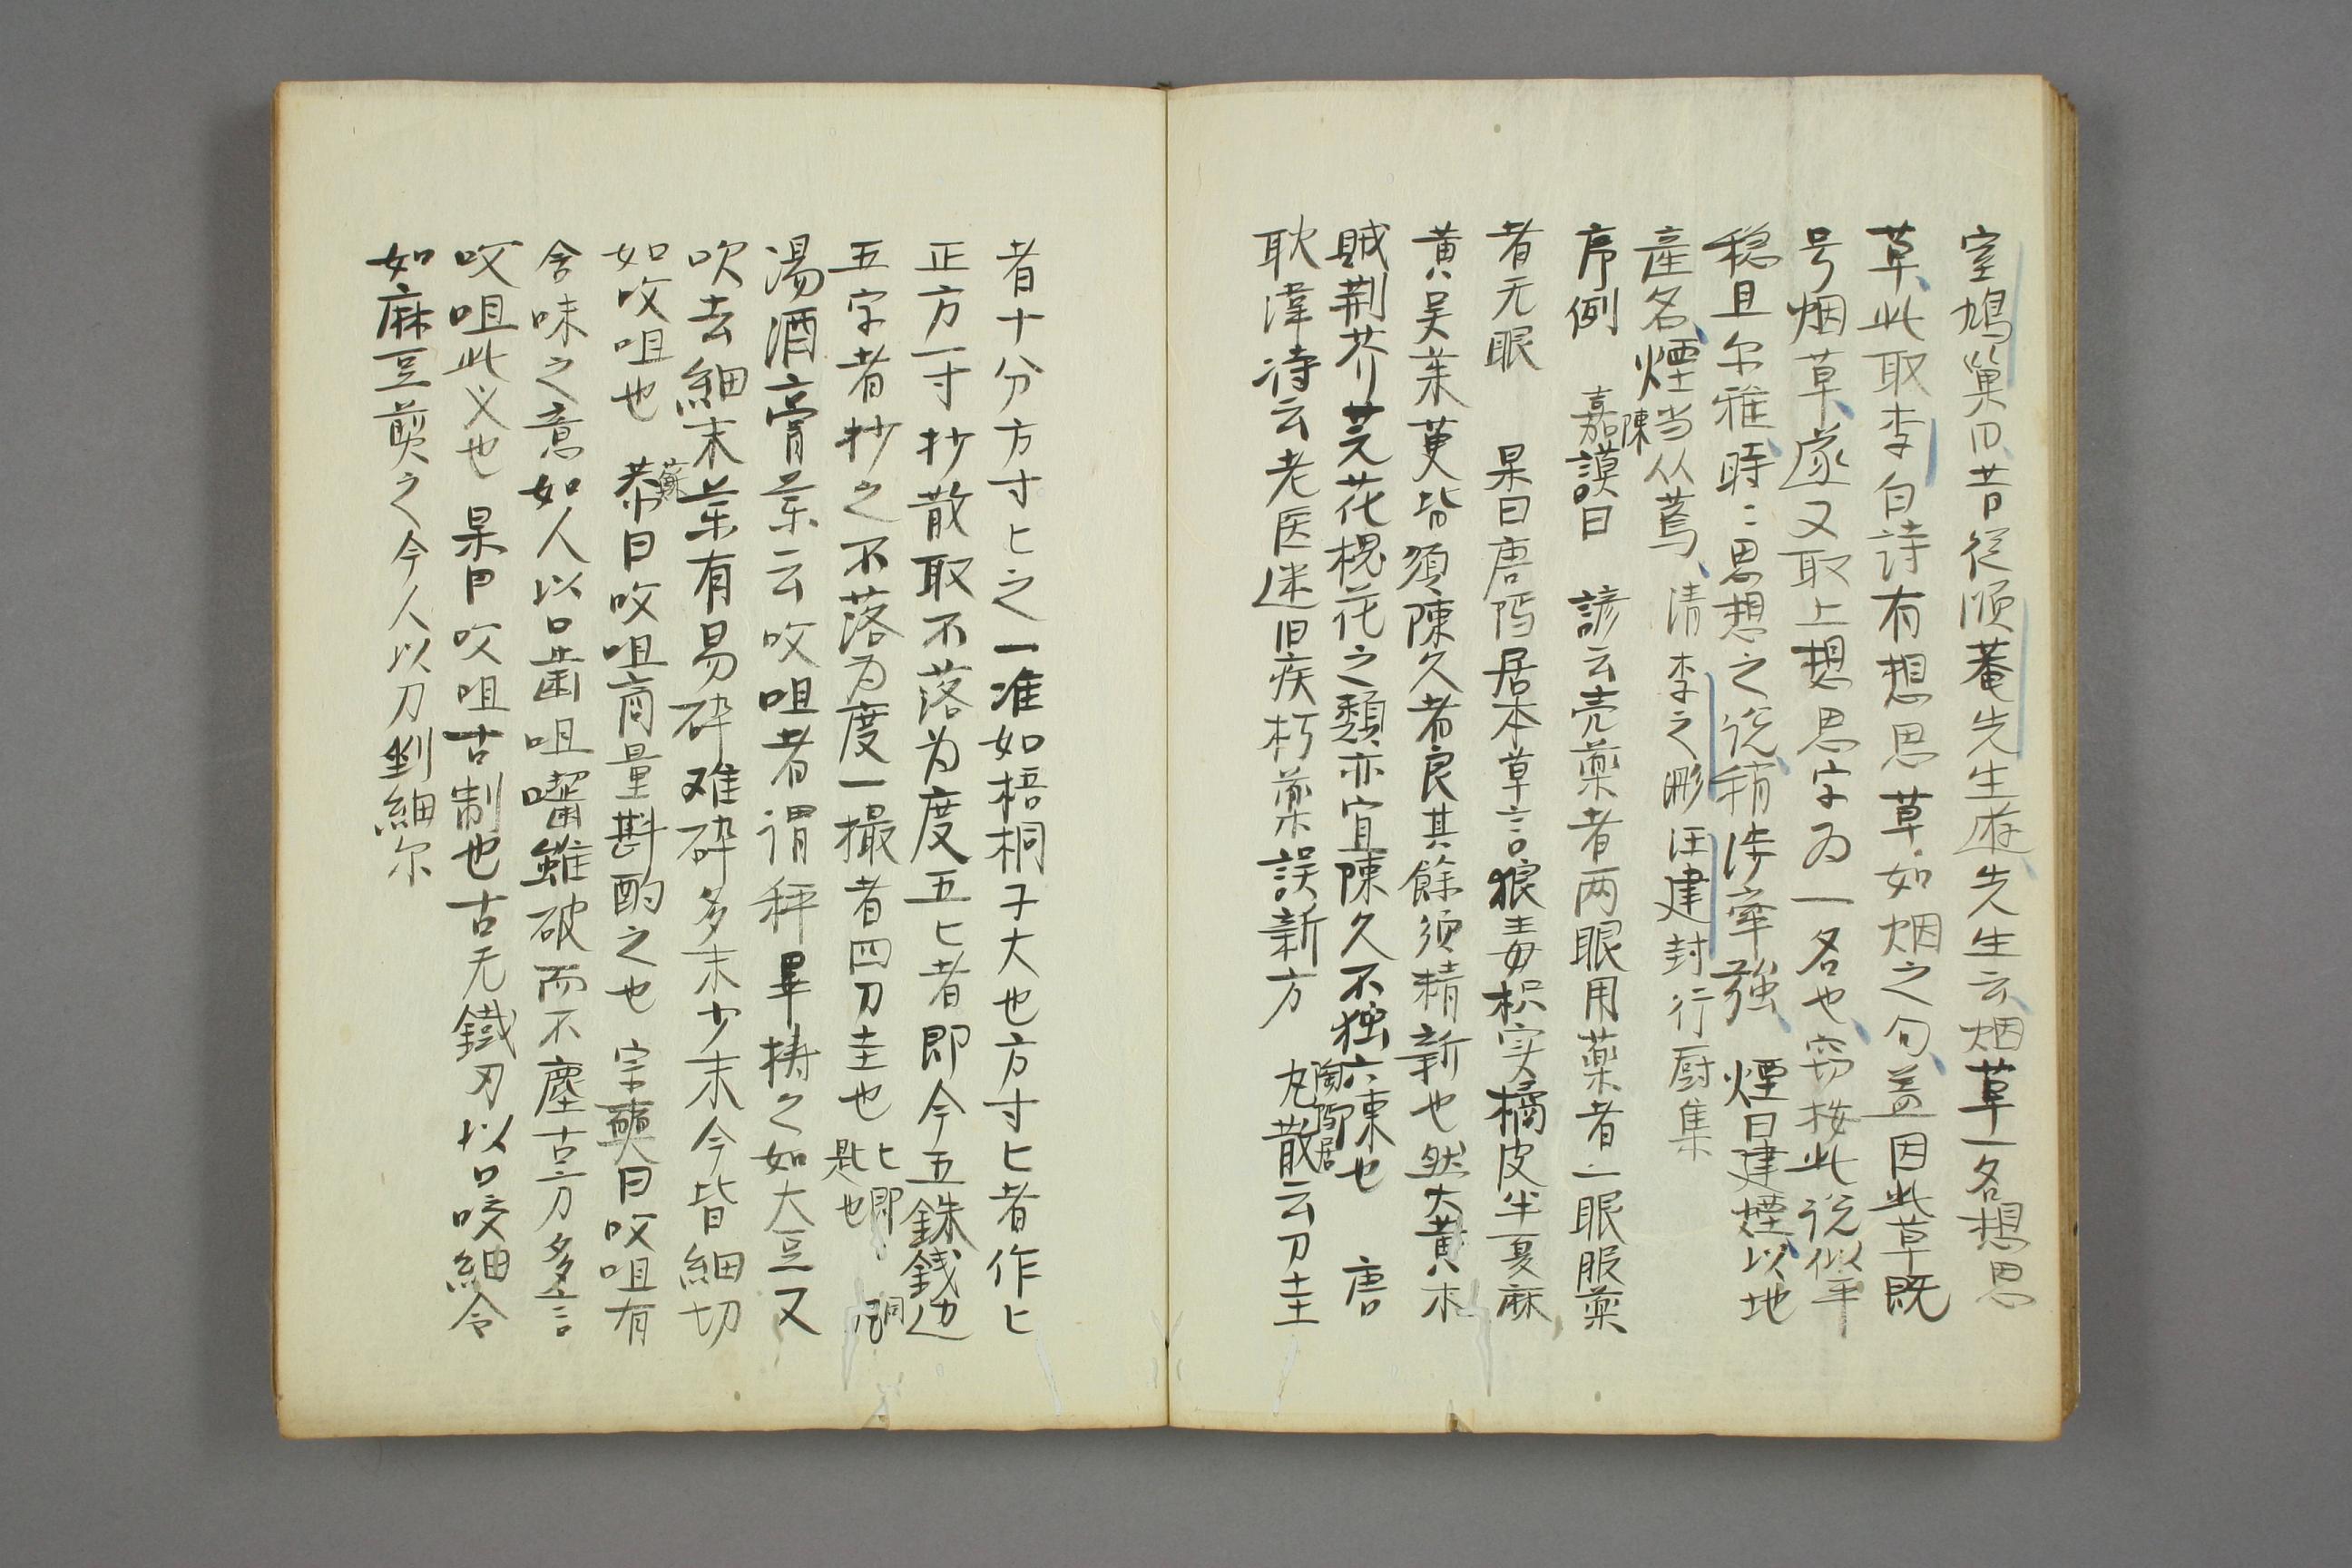 室鳩巢曰昔從順菴先生遊先生云烟草一名想思
草此取李白詩有想思草如烟之句蓋因此草既
号烟草遂又取上想思字為一名也窃按此説似乎
穏且尓雅時〻思想之説稍涉牽強 煙曰建煙以地
産名煙当从蔫清李之彫汪建封行厨集
序例 陳嘉謨曰 諺云売薬者両眼用薬者一眼服薬
者无眼 杲曰唐隠居本草言狼毒枳実橘皮半夏麻
黄呉茱萸皆須陳久者良其餘須精新也然大黄木
賊荊芥芫花槐花之類亦宜陳久不独六陳也 唐
耿湋詩云老医迷旧疾朽薬誤新方 陶隠居 丸散云刀圭
者十分方寸匕之一准如梧桐子大也方寸匕者作匕
正方一寸抄散取不落为度五匕者即今五銖銭辺
五字者抄之不落为度一撮者四刀圭也 匕即匙也
湯酒膏薬云㕮咀者謂秤畢擣之如大豆又
吹去細末薬有易砕难砕多末少末今皆細切
如㕮咀也 蘇恭曰㕮咀商量斟酌之也 宗奭曰㕮咀有
含味之意如人以口歯咀嚼雖破而不塵古方多言
㕮咀此义也 杲曰㕮咀古制也古无鐵刃以口咬細令
如麻豆煎之今人以刀剉細尓